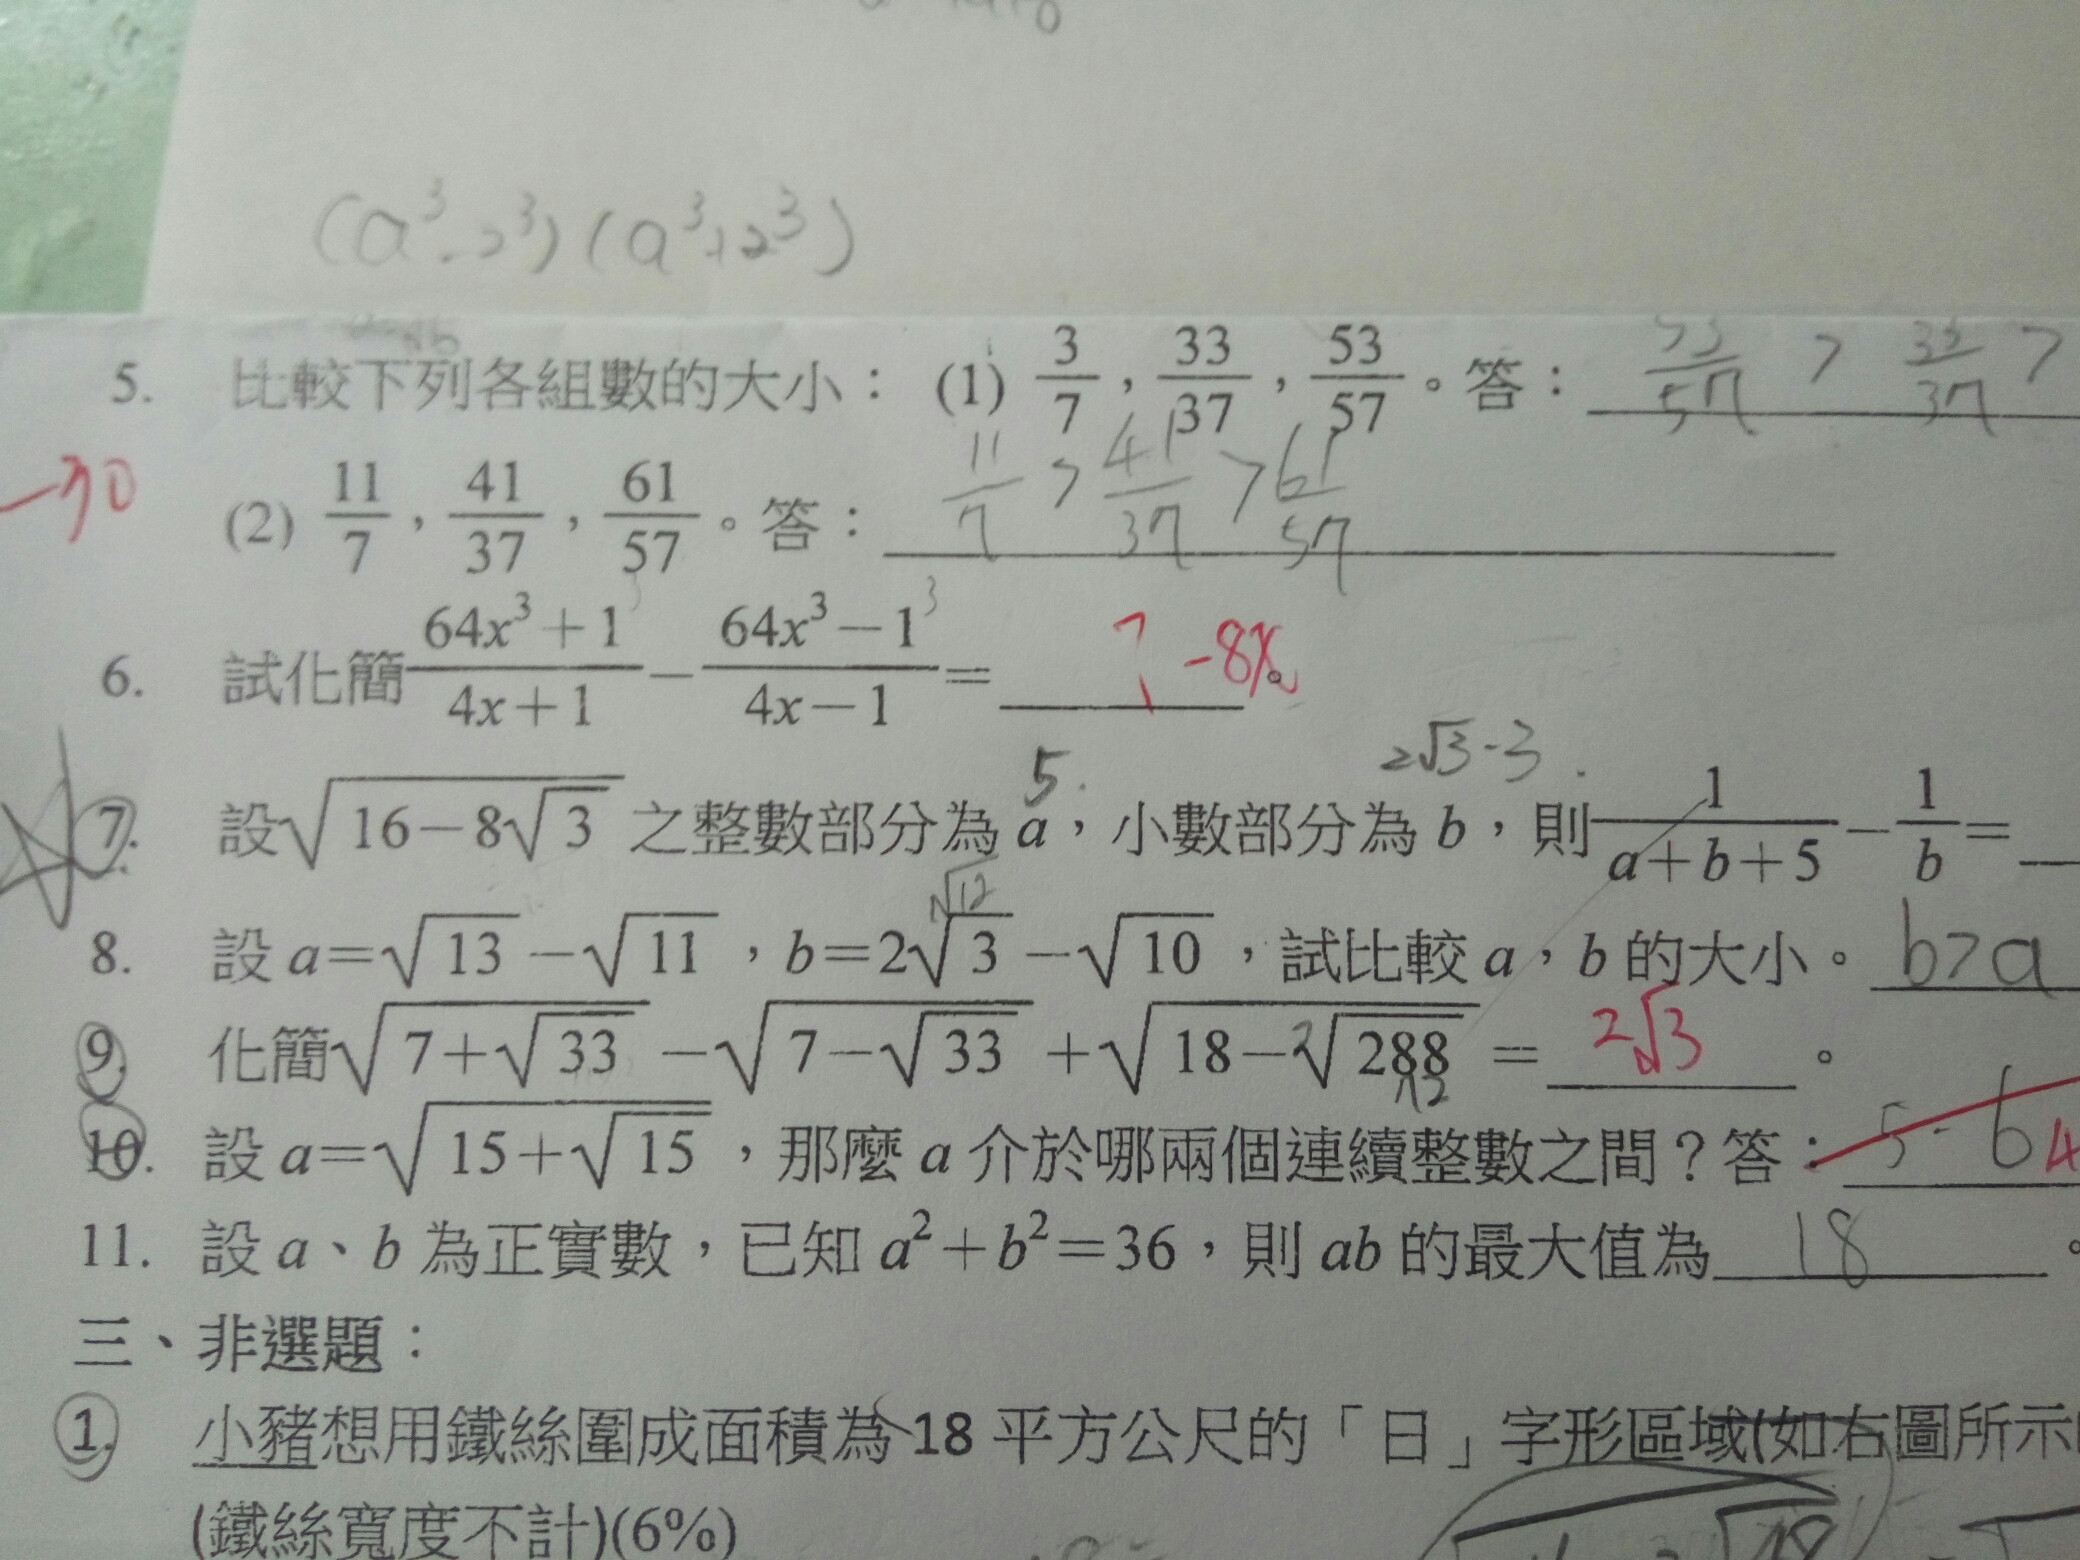 (a³-2³)(a³+2³)
5. 比較下列各組數的大小： (1) 3/7，33/37，53/57。答： 53/57 > 33/37 >
-30
(2) 11/7，41/37，61/57。答： 11/7 > 41/37 > 61/57
6. 試化簡 (64x³+1)/(4x+1) - (64x³-1)/(4x-1) = -8x。
5. 2√3-3
7. 設√(16-8√3) 之整數部分為 a，小數部分為 b，則 1/(a+b+5) - 1/b =
√12
8. 設 a=√13-√11，b=2√3-√10，試比較 a，b 的大小。 b>a
9. 化簡√(7+√33) - √(7-√33) + √(18-2√288) = 2√3 。
72
10. 設 a=√(15+√15)，那麼 a 介於哪兩個連續整數之間？答： 5-6 4
11. 設 a、b 為正實數，已知 a²+b²=36，則 ab 的最大值為 18 。
三、非選題：
1. 小豬想用鐵絲圍成面積為 18 平方公尺的「日」字形區域(如右圖所示
(鐵絲寬度不計)(6%)